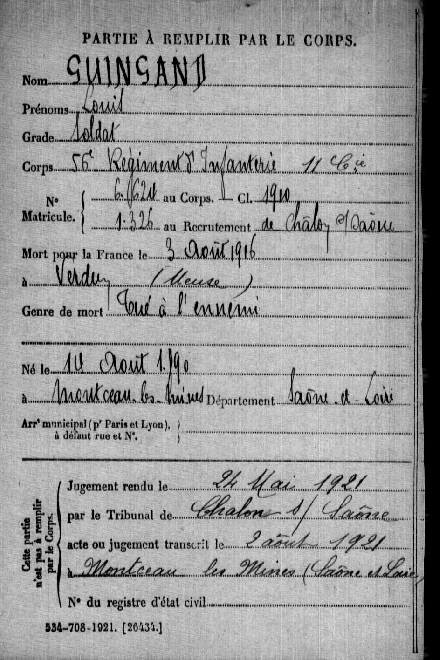 PARTIE À REMPLIR PAR LE CORPS.
Nom GUINGAND
Prénoms Louis
Grade Soldat
Corps 56e Régiment d'Infanterie 11 Cie
N° Matricule. { au Corps. — Cl. 1910
1.326 au Recrutement de Châlon s/Saône
Mort pour la France le 3 Août 1916
à Verdun (Meuse)
Genre de mort Tué à l'ennemi
Né le Août 1890
à Montceau-les-Mines Département Saône-et-Loire
Arrt municipal (pr Paris et Lyon),
à défaut rue et N°.
Cette partie n'est pas à remplir par le Corps.
Jugement rendu le 24 Mai 1921
par le Tribunal de Chalon s/ Saône
acte ou jugement transcrit le 2 août 1921
à Montceau les Mines (Saône et Loire)
N° du registre d'état civil
534-708-1921. [26434.]